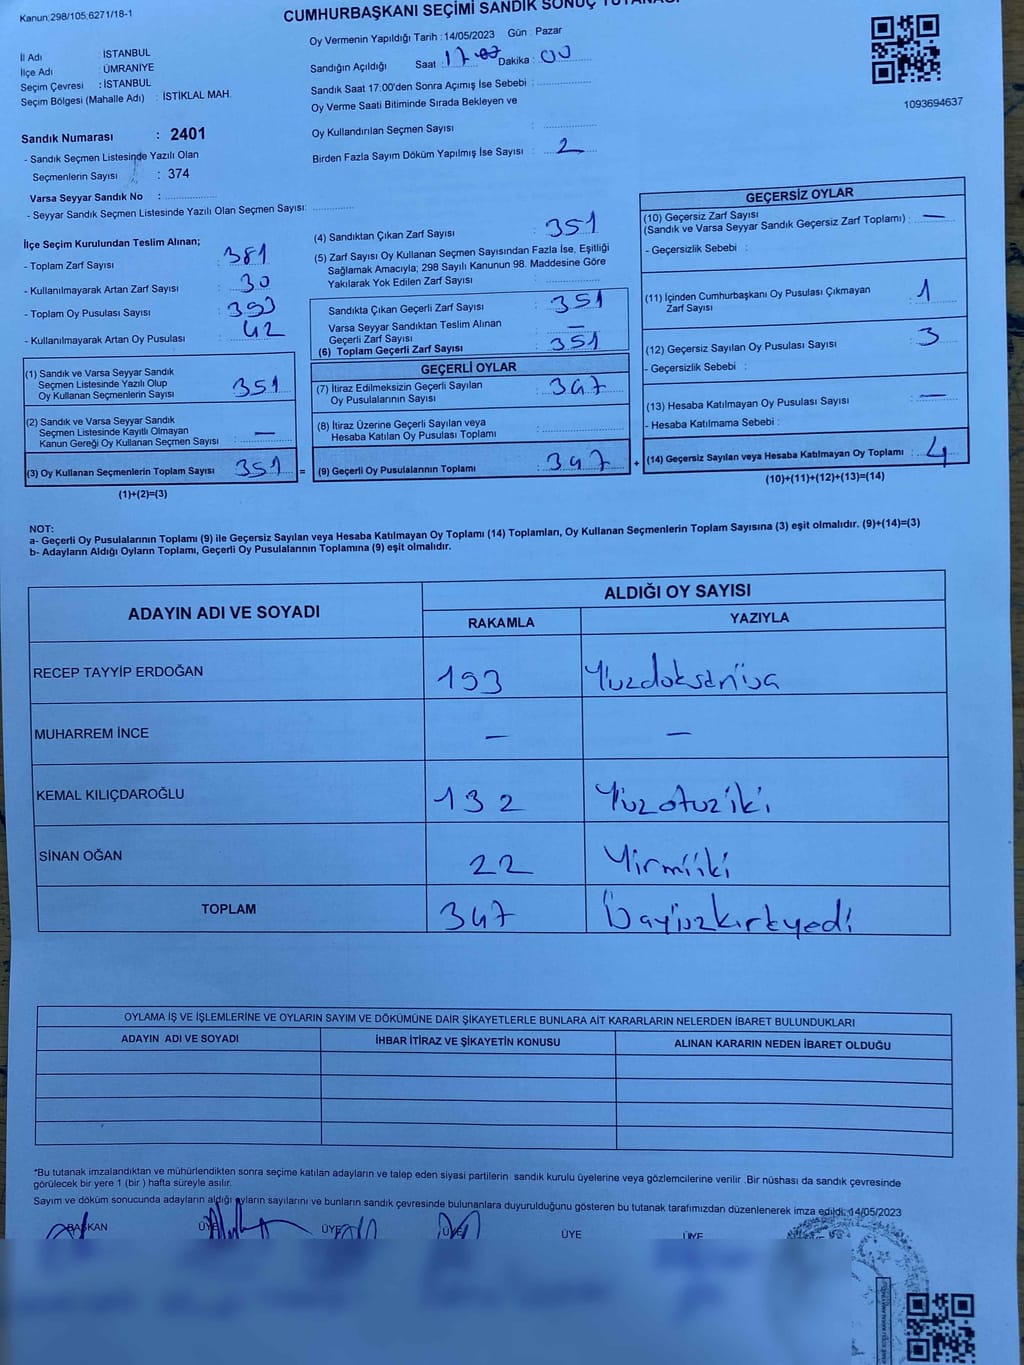 Kanun:298/105;6271/18-1
CUMHURBAŞKANI SEÇİMİ SANDIK SONUÇ TUTANAĞI
Oy Vermenin Yapıldığı Tarih : 14/05/2023 Gün : Pazar
İl Adı : İSTANBUL
İlçe Adı : ÜMRANİYE
Seçim Çevresi : İSTANBUL
Seçim Bölgesi (Mahalle Adı) : İSTİKLAL MAH.
Sandığın Açıldığı Saat : 17 Dakika : 00
Sandık Saat 17:00'den Sonra Açımış İse Sebebi :
Oy Verme Saati Bitiminde Sırada Bekleyen ve
Oy Kullandırılan Seçmen Sayısı :
Birden Fazla Sayım Döküm Yapılmış İse Sayısı : 2
1093694637
Sandık Numarası : 2401
- Sandık Seçmen Listesinde Yazılı Olan
Seçmenlerin Sayısı : 374
Varsa Seyyar Sandık No :
- Seyyar Sandık Seçmen Listesinde Yazılı Olan Seçmen Sayısı:
İlçe Seçim Kurulundan Teslim Alınan;
- Toplam Zarf Sayısı : 381
- Kullanılmayarak Artan Zarf Sayısı : 30
- Toplam Oy Pusulası Sayısı : 393
- Kullanılmayarak Artan Oy Pusulası : 42
(1) Sandık ve Varsa Seyyar Sandık
Seçmen Listesinde Yazılı Olup
Oy Kullanan Seçmenlerin Sayısı : 351
(2) Sandık ve Varsa Seyyar Sandık
Seçmen Listesinde Kayıtlı Olmayan
Kanun Gereği Oy Kullanan Seçmen Sayısı : —
(3) Oy Kullanan Seçmenlerin Toplam Sayısı : 351 =
(1)+(2)=(3)
(4) Sandıktan Çıkan Zarf Sayısı : 351
(5) Zarf Sayısı Oy Kullanan Seçmen Sayısından Fazla İse, Eşitliği
Sağlamak Amacıyla; 298 Sayılı Kanunun 98. Maddesine Göre
Yakılarak Yok Edilen Zarf Sayısı :
Sandıkta Çıkan Geçerli Zarf Sayısı : 351
Varsa Seyyar Sandıktan Teslim Alınan
Geçerli Zarf Sayısı : —
(6) Toplam Geçerli Zarf Sayısı : 351
GEÇERLİ OYLAR
(7) İtiraz Edilmeksizin Geçerli Sayılan
Oy Pusulalarının Sayısı : 347
(8) İtiraz Üzerine Geçerli Sayılan veya
Hesaba Katılan Oy Pusulası Toplamı :
(9) Geçerli Oy Pusulalarının Toplamı : 347 +
GEÇERSİZ OYLAR
(10) Geçersiz Zarf Sayısı
(Sandık ve Varsa Seyyar Sandık Geçersiz Zarf Toplamı) : —
- Geçersizlik Sebebi :
(11) İçinden Cumhurbaşkanı Oy Pusulası Çıkmayan
Zarf Sayısı : 1
(12) Geçersiz Sayılan Oy Pusulası Sayısı : 3
- Geçersizlik Sebebi :
(13) Hesaba Katılmayan Oy Pusulası Sayısı : —
- Hesaba Katılmama Sebebi :
(14) Geçersiz Sayılan veya Hesaba Katılmayan Oy Toplamı : 4
(10)+(11)+(12)+(13)=(14)
NOT:
a- Geçerli Oy Pusulalarının Toplamı (9) ile Geçersiz Sayılan veya Hesaba Katılmayan Oy Toplamı (14) Toplamları, Oy Kullanan Seçmenlerin Toplam Sayısına (3) eşit olmalıdır. (9)+(14)=(3)
b- Adayların Aldığı Oyların Toplamı, Geçerli Oy Pusulalarının Toplamına (9) eşit olmalıdır.
ADAYIN ADI VE SOYADI ALDIĞI OY SAYISI
RAKAMLA YAZIYLA
RECEP TAYYİP ERDOĞAN 193
MUHARREM İNCE — —
KEMAL KILIÇDAROĞLU 132 Yüzotuziki
SİNAN OĞAN 22 Yirmiiki
TOPLAM 347
OYLAMA İŞ VE İŞLEMLERİNE VE OYLARIN SAYIM VE DÖKÜMÜNE DAİR ŞİKAYETLERLE BUNLARA AİT KARARLARIN NELERDEN İBARET BULUNDUKLARI
ADAYIN ADI VE SOYADI İHBAR İTİRAZ VE ŞİKAYETİN KONUSU ALINAN KARARIN NEDEN İBARET OLDUĞU
*Bu tutanak imzalandıktan ve mühürlendikten sonra seçime katılan adayların ve talep eden siyasi partilerin sandık kurulu üyelerine veya gözlemcilerine verilir .Bir nüshası da sandık çevresinde
görülecek bir yere 1 (bir ) hafta süreyle asılır.
Sayım ve döküm sonucunda adayların aldığı oyların sayılarını ve bunların sandık çevresinde bulunanlara duyurulduğunu gösteren bu tutanak tarafımızdan düzenlenerek imza edildi. 14/05/2023
BAŞKAN ÜYE ÜYE ÜYE ÜYE ÜYE